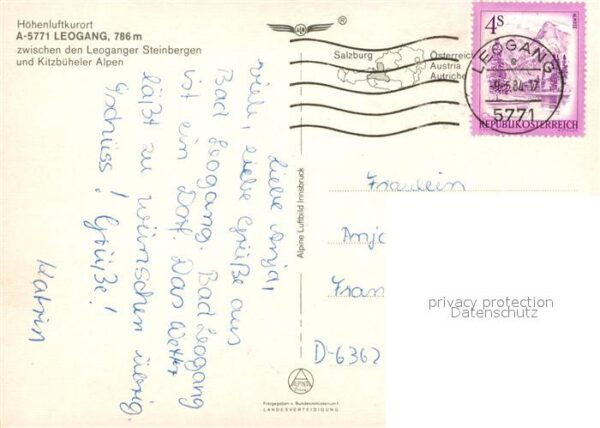 Höhenluftkurort
A-5771 LEOGANG, 786 m
zwischen den Leoganger Steinbergen
und Kitzbüheler Alpen
®
Salzburg
Österreich
Austria
Autriche
4S
LEOGANG
9.-5.84-17
5771
REPUBLIK ÖSTERREICH
Liebe Anja,
viele, liebe Grüße aus
Bad Leogang. Bad Leogang
ist ein Dorf. Das Wetter
läßt zu wünschen übrig
Tschüss! Grüße!
Katrin
Alpine Luftbild Innsbruck
Fräulein
Anj
Fran
D-6362
privacy protection
Datenschutz
ALPINE
Freigegeben v. Bundesministerium f.
LANDESVERTEIDIGUNG